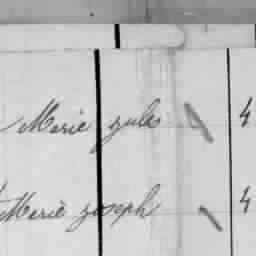 Merie zule 4
Merie zoseph 4